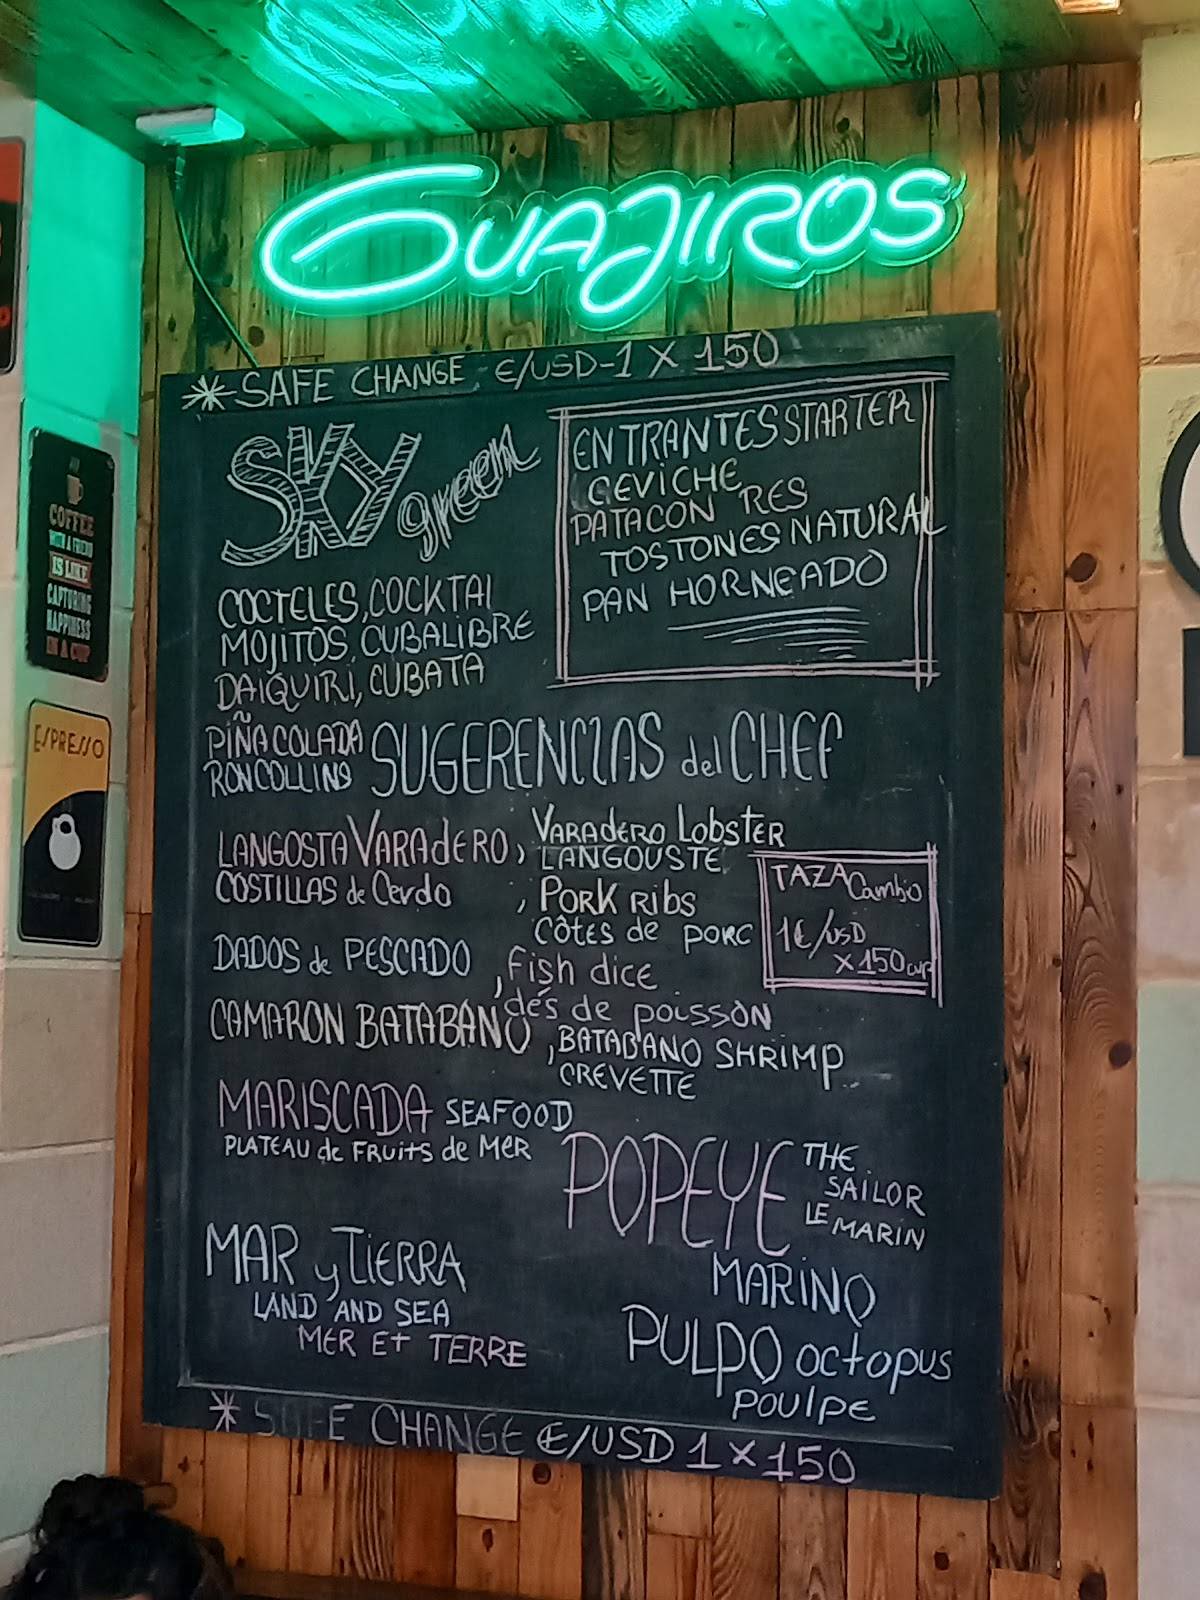 GUAJIROS
* SAFE CHANGE €/USD-1 X 150
SKY green
ENTRANTES STARTER
CEVICHE
PATACON RES
TOSTONES NATURAL
PAN HORNEADO
COCTELES, COCKTAI
MOJITOS, CUBALIBRE
DAIQUIRI, CUBATA
PIÑA COLADA
RON COLLINS
SUGERENCIAS del CHEF
LANGOSTA VARADERO, VARADERO LOBSTER
LANGOUSTE
COSTILLAS de Cerdo, PORK RIBS
CÔTES de PORC
TAZA Cambio
1€/USD
X 150 CUP
DADOS de PESCADO, Fish dice
dés de poisson
CAMARON BATABANO, BATABANO SHRIMP
CREVETTE
MARISCADA SEAFOOD
PLATEAU de FRUITS de MER
POPEYE THE
SAILOR
LE MARIN
MARINO
MAR y TIERRA
LAND AND SEA
MER ET TERRE
PULPO octopus
POULPE
* SAFE CHANGE €/USD 1 X 150
COFFEE
WITH A FRIEND
IS LIKE
CAPTURING
HAPPINESS
IN A CUP
ESPRESSO